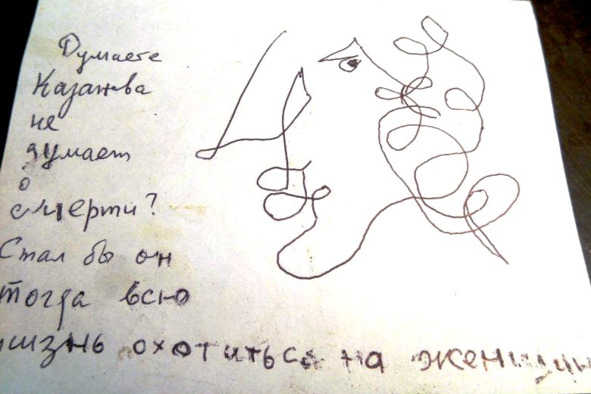 Думаете
Казанова
не
думает
о
смерти?
Стал бы он
тогда всю
жизнь охотиться на женщин